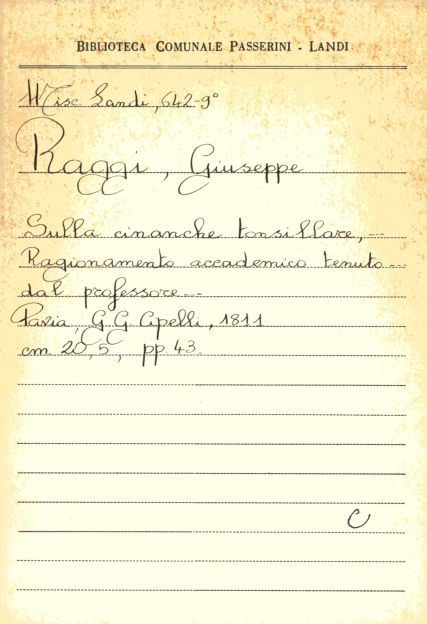 BIBLIOTECA COMUNALE PASSERINI - LANDI
Misc. Landi, 642-9°
Raggi, Giuseppe
Sulla cinanche tonsillare, ---
Ragionamento accademico tenuto ---
dal professore ---
Pavia, G. G. Capelli, 1811
cm. 20,5, pp. 43.
C